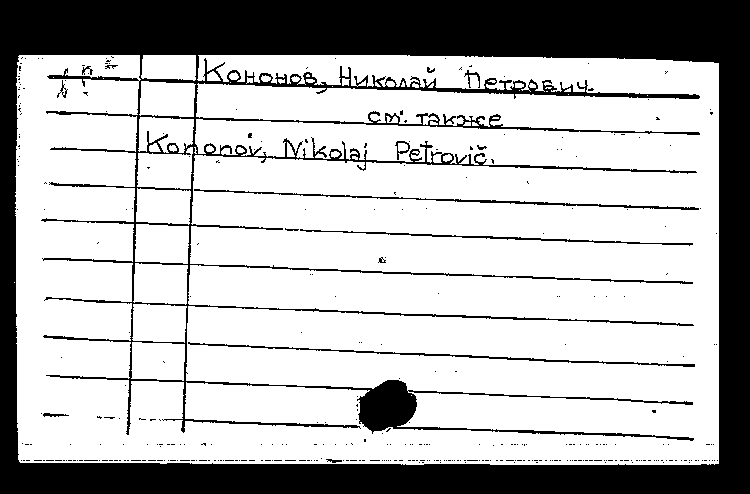 Кононов, Николай Петрович.
см. также
Kononov, Nikolaj Petrovič.